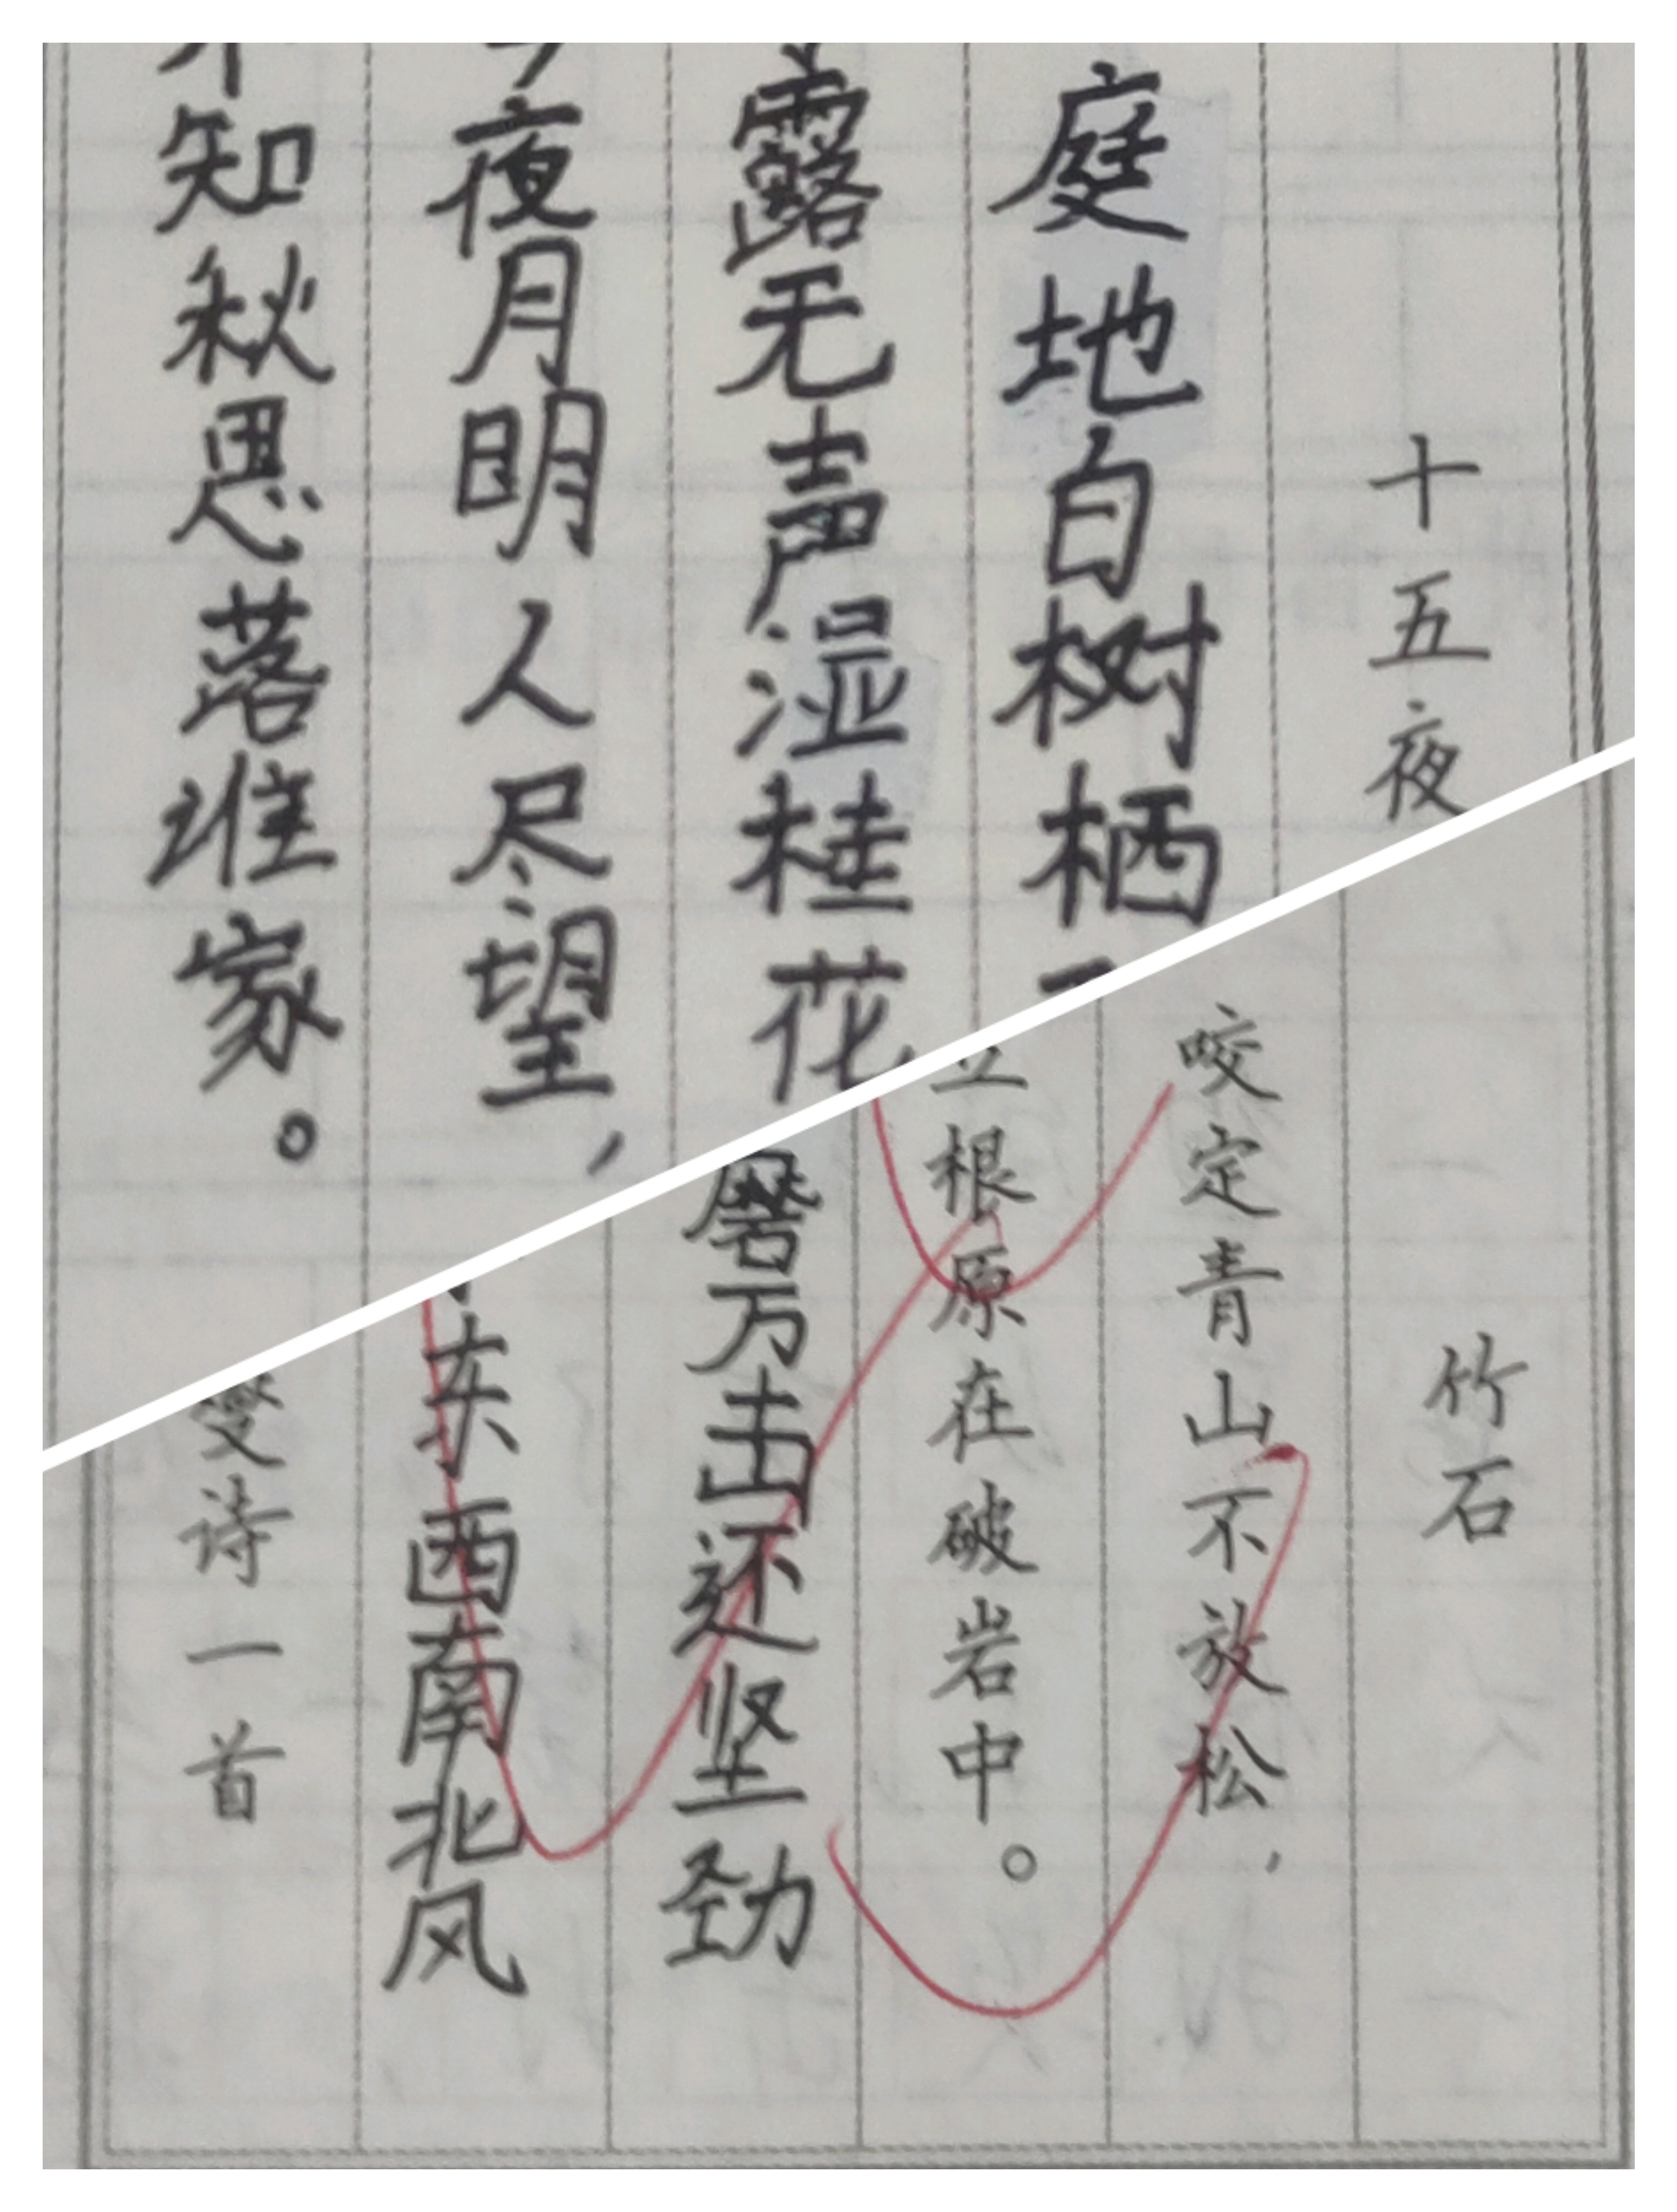 十五夜
庭地白树栖
露无声湿桂花
夜月明人尽望，
知秋思落谁家。
竹石
咬定青山不放松，
立根原在破岩中。
磨万击还坚劲
东西南北风
燮诗一首